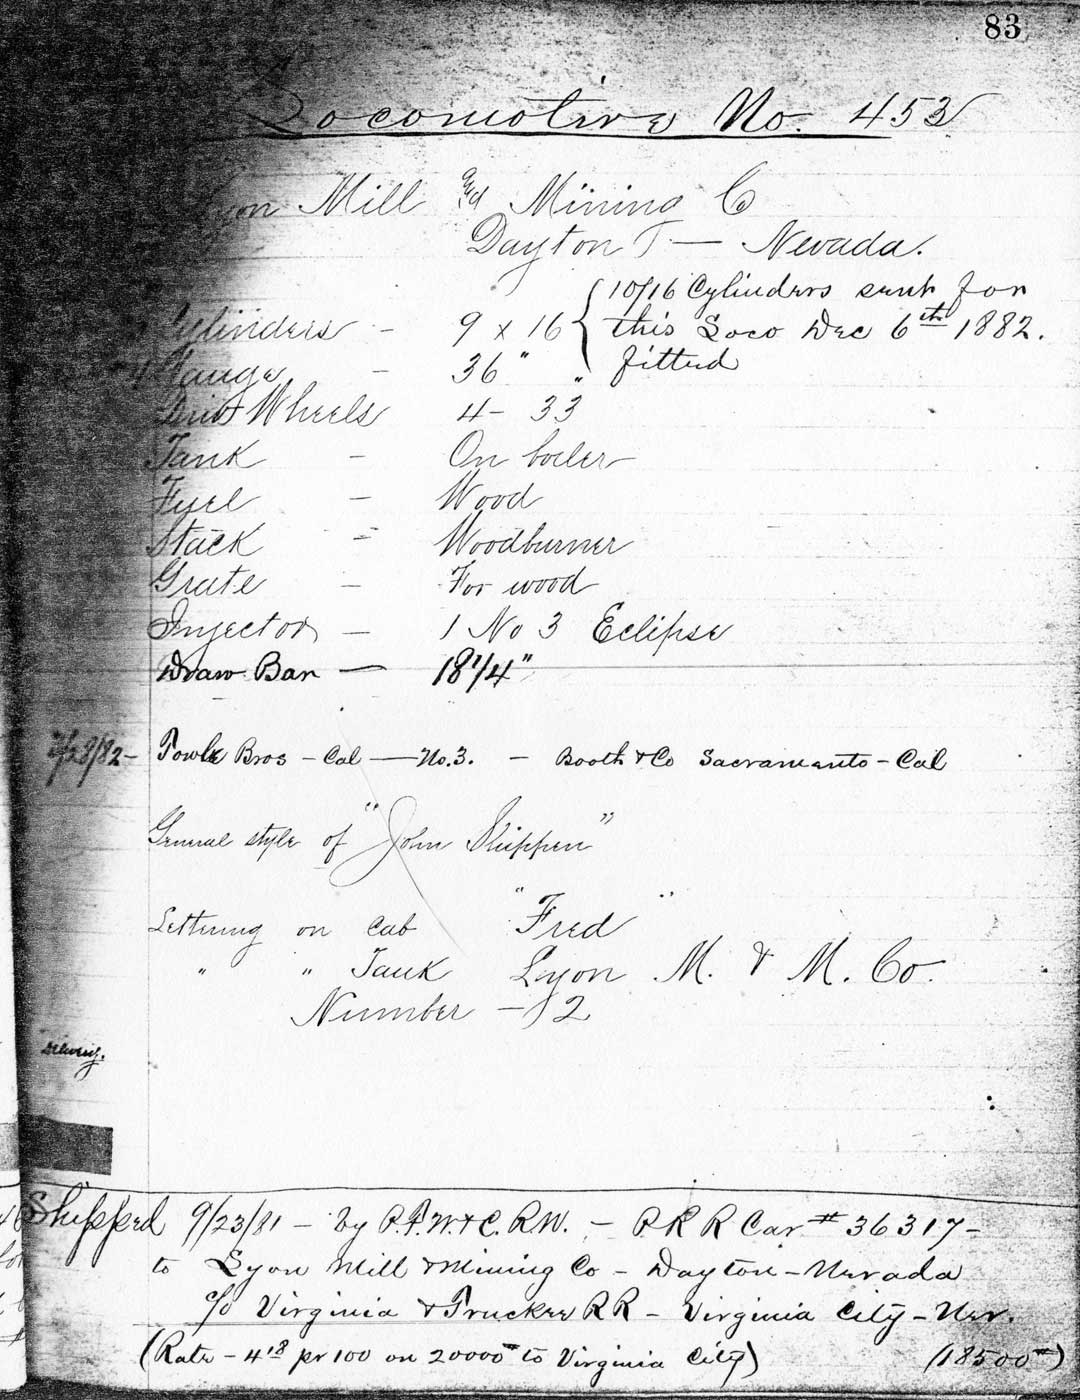 83
Locomotive No. 453
Lyon Mill and Mining Co
Dayton — Nevada.
Cylinders – 9 x 16 { 10/16 Cylinders sent for
this Loco Dec 6th 1882.
fitted
Gauge – 36"
Driv Wheels 4 – 33"
Tank – On boiler
Fuel – Wood
Stack – Woodburner
Grate – For wood
Injector – 1 No 3 Eclipse
Draw Bar — 18 1/4"
/28/82 – Towle Bros – Cal — No. 3. – Booth & Co Sacramento – Cal
General style of "John Shippen"
Lettering on Cab "Fred"
" " Tank Lyon M. & M. Co.
Number – 2
Delivery.
Shipped 9/23/81 – by P.F.W. & C. R.W. – P R R Car # 36317 –
to Lyon Mill & Mining Co – Dayton – Nevada
c/o Virginia & Truckee RR – Virginia City – Nev.
(Rate – 4 18 pr 100 on 20000# to Virginia City) (18500#)